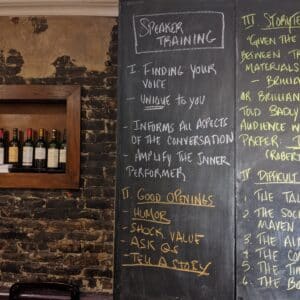 SPEAKER
TRAINING
I. FINDING YOUR
VOICE
- UNIQUE TO YOU
- INFORMS ALL ASPECTS
OF THE CONVERSATION
- AMPLIFY THE INNER
PERFORMER
II GOOD OPENINGS
- HUMOR
- SHOCK VALUE
- ASK QS
- TELL A STORY
III STORYTE
"GIVEN THE
BETWEEN TR
MATERIALS
- BRILLI
OR BRILLIAN
TOLD BADLY
AUDIENCE W
PREFER
(ROBER
IV DIFFICULT
1. THE TAL
2. THE SOC
MAVEN
3. THE AL
4. THE CO
5. THE TI
6. THE BO